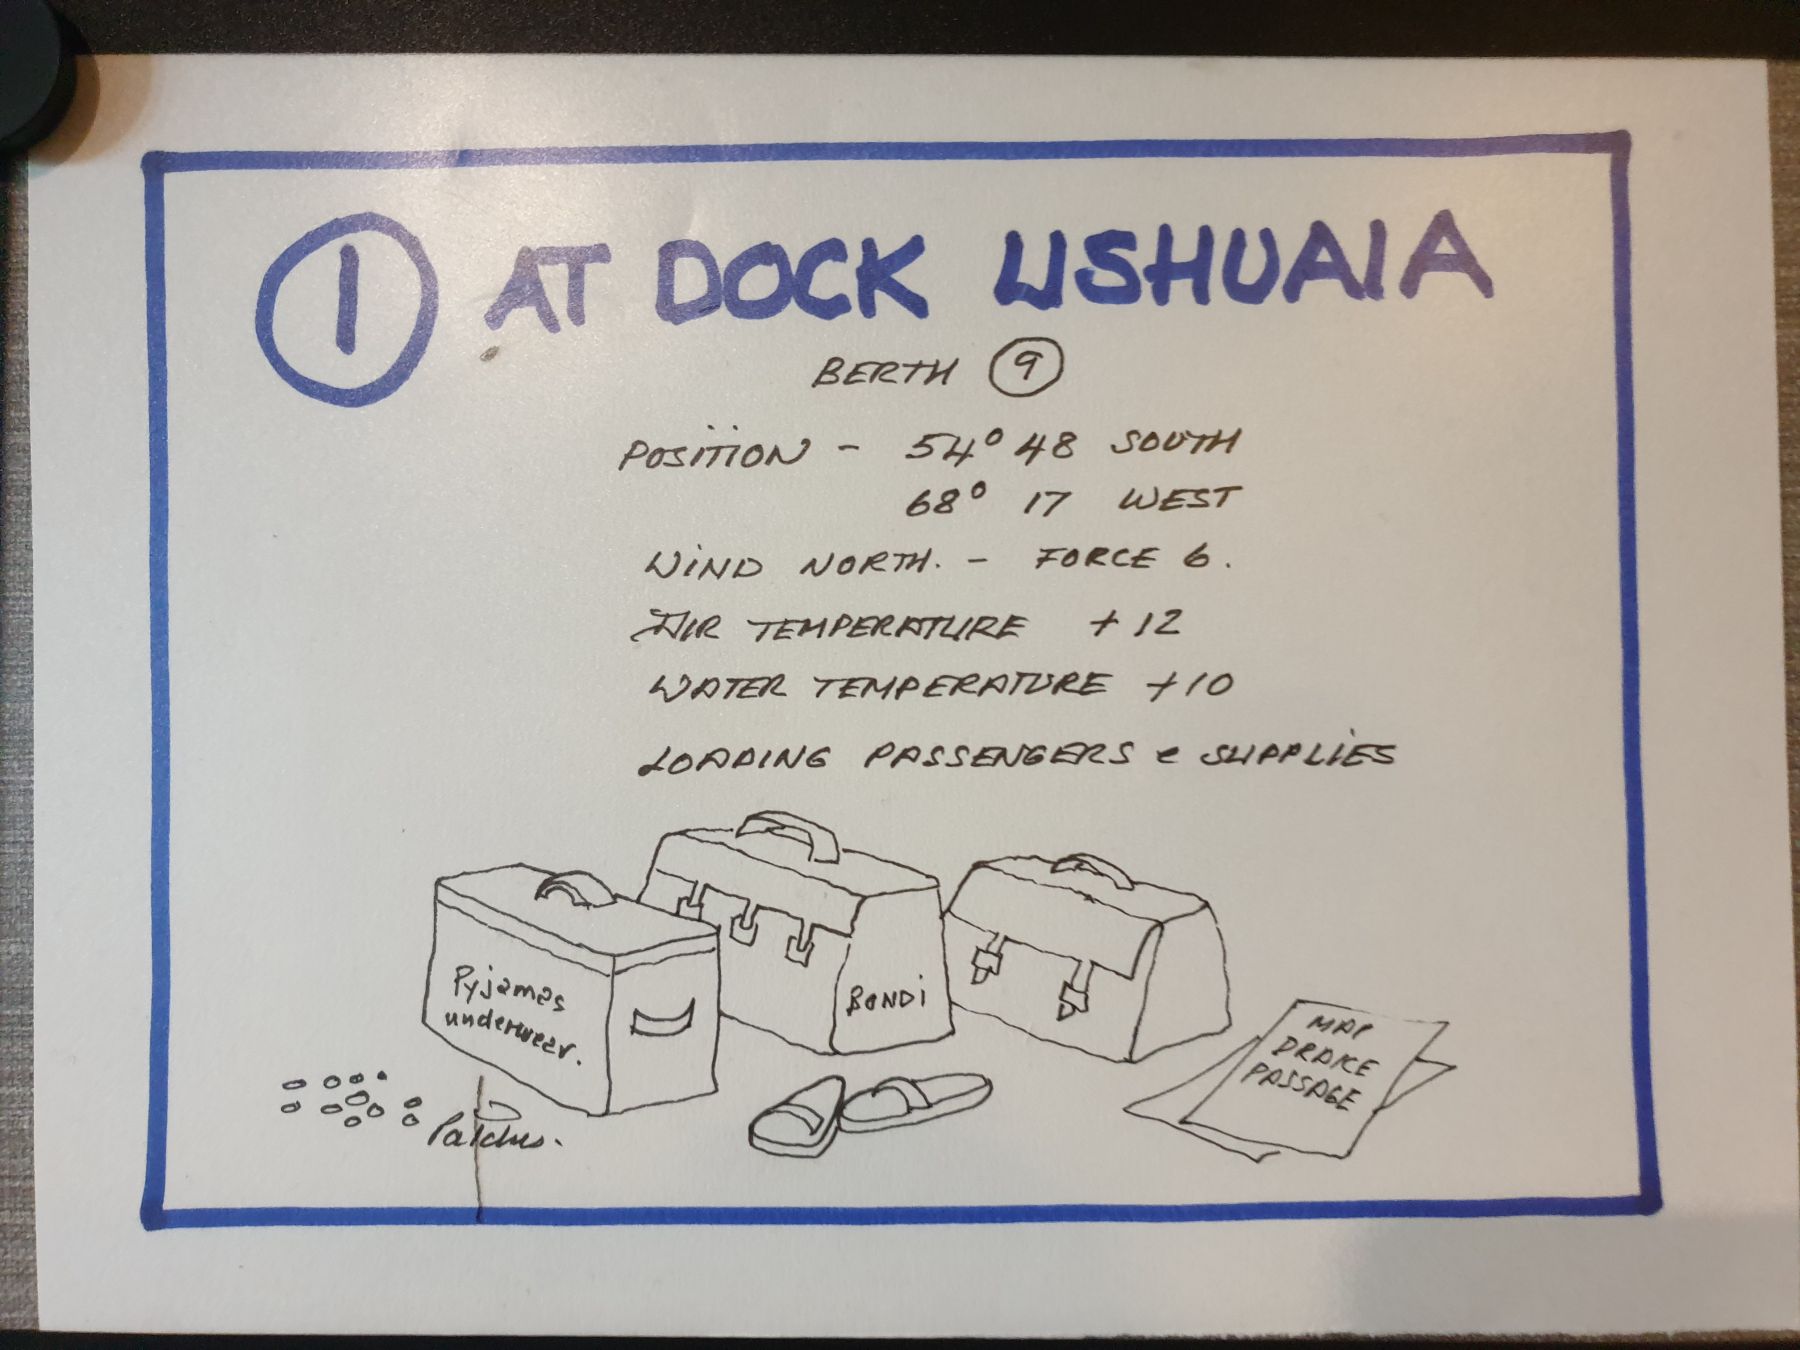 1 AT DOCK USHUAIA
BERTH 9
POSITION - 54° 48 SOUTH
68° 17 WEST
WIND NORTH. - FORCE 6.
AIR TEMPERATURE +12
WATER TEMPERATURE +10
LOADING PASSENGERS e SUPPLIES
Pyjamas
underwear.
BONDI
MAP
DRAKE
PASSAGE
Patches.